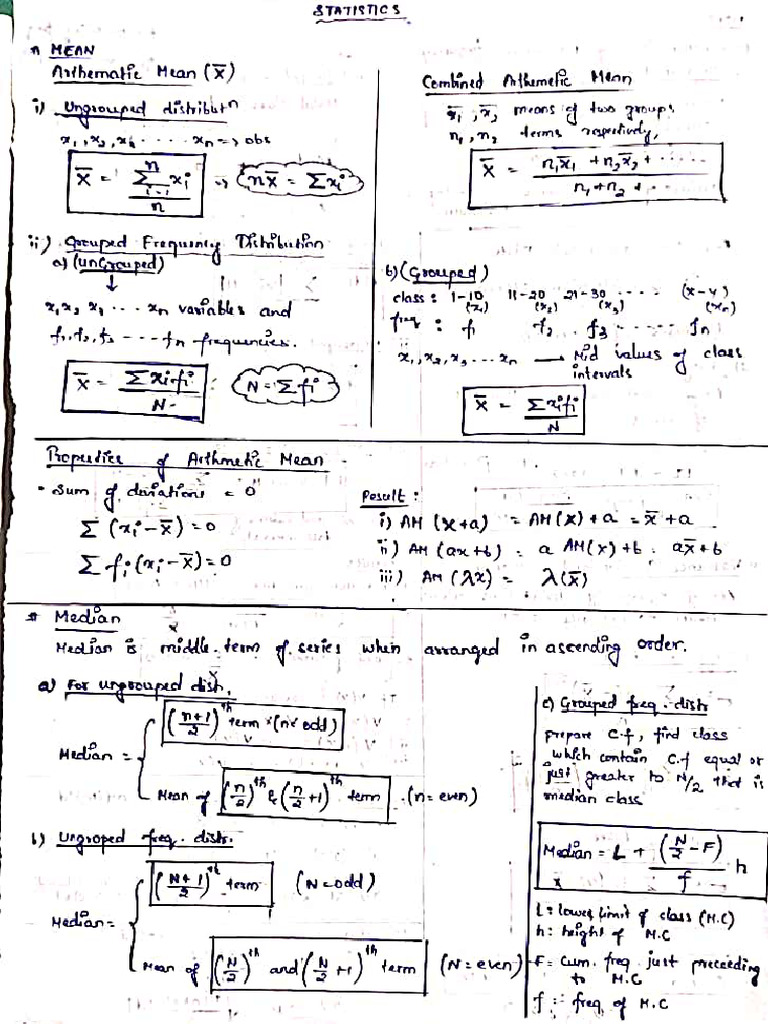 STATISTICS
MEAN
Arithematic Mean (x̄)
i) Ungrouped distributn
x₁, x₂, x₃ ..... xₙ => obs
x̄ = Σⁿᵢ₌₁ xᵢ / n => nx̄ = Σxᵢ
ii) Grouped Frequency Distribution
a) (UnGrouped)
↓
x₁ x₂ x₃ ... xₙ variables and
f₁, f₂, f₃ ---- fₙ frequencies.
x̄ = Σxᵢfᵢ / N
N = Σfᵢ
Combined Arthemetic Mean
x̄₁, x̄₂ means of two groups
n₁, n₂ terms respectively,
x̄ = n₁x̄₁ + n₂x̄₂ + ..... / n₁ + n₂ + ..
b) (Grouped)
class : 1-10 11-20 21-30 ..... (x-y)
(x₁) (x₂) (x₃) (xₙ)
freq : f₁ f₂ . f₃ ..... fₙ
x₁, x₂, x₃ ... xₙ → Mid values of class
intervals
x̄ = Σxᵢfᵢ / N
Properties of Arithmetic Mean
• Sum of deviations = 0
Σ (xᵢ - x̄) = 0
Σ fᵢ (xᵢ - x̄) = 0
Result :
i) AM (x+a) = AM(x) + a = x̄ + a
ii) AM (ax+b) = a AM(x) + b = ax̄ + b
iii) AM (λx) = λ(x̄)
Median
Median is middle term of series when arranged in ascending order.
a) For ungrouped dist.
Median = { ((n+1)/2)ᵗʰ term (n = odd)
Mean of (n/2)ᵗʰ & (n/2 + 1)ᵗʰ term (n = even)
b) Ungroped freq. distr.
Median = { ((N+1)/2)ᵗʰ term (N = odd)
Mean of (N/2)ᵗʰ and (N/2 + 1)ᵗʰ term (N = even)
c) Grouped freq. distr
Prepare C.f, find class
which contain C.f equal or
just greater to N/2 that is
median class
Median = L + ((N/2 - F) / f) h
L = lower limit of class (M.C)
h = height of M.C
F = Cum. freq. just preceeding
to M.C
f = freq of M.C